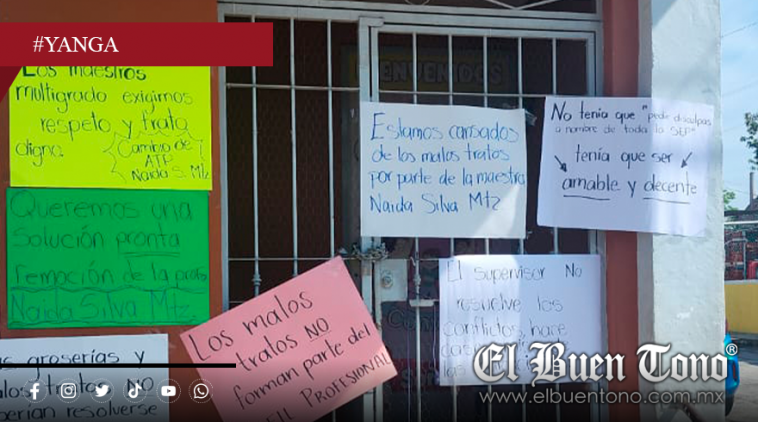 #YANGA
Los maestros
multigrado exigimos
respeto y trato
digno.
Cambio de
ATP
Naida S. Mtz
BIENVENIDOS
Estamos cansados
de los malos tratos
por parte de la maestra
Naida Silva Mtz
No tenía que "pedir disculpas
a nombre de toda la SEP"
tenía que ser
amable y decente
Queremos una
Solución pronta
remoción de la profa
Naida Silva Mtz
Los malos
tratos NO
forman parte del
PROFESIONAL
El supervisor No
resuelve los
conflictos, hace
groserías y
tratos NO
resolverse
El Buen Tono®
www.elbuentono.com.mx